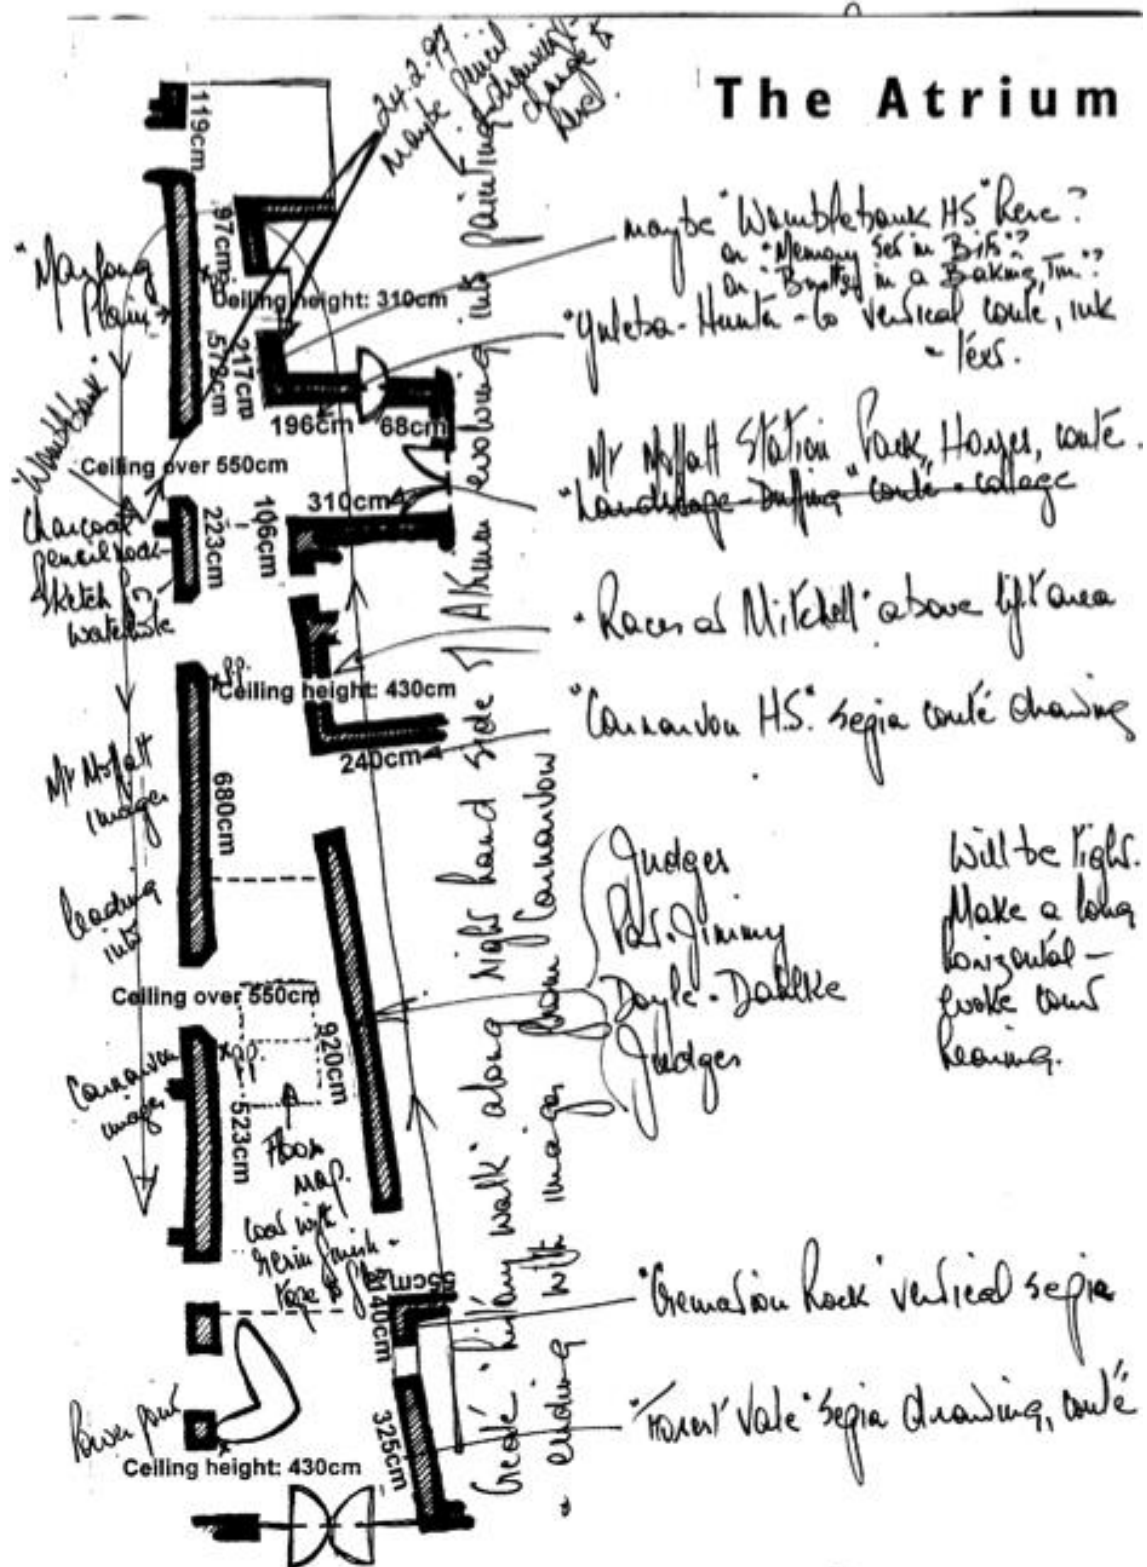 The Atrium
24.2.97
maybe pencil
drawing -
change to
here.
119cm
97cm
Ceiling height: 310cm
572cm
217cm
196cm
68cm
Ceiling over 550cm
310cm
106cm
223cm
Ceiling height: 430cm
240cm
680cm
Ceiling over 550cm
920cm
523cm
55cm
140cm
325cm
Ceiling height: 430cm
Plain"
Charcoal
pencil rock
Sketch
waterhole
Mt Moffatt
images
leading
into
Carnarvon
images
Power point
Floor
map.
coat with
resin finish -
tape to floor
pp.
pp.
Create "history walk" along right hand side of Atrium evolving into painting
- ending with images from Carnarvon
maybe "Womblebank HS" here?
or "Memory Set in Bits"?
in a Baking Tin"?
"Yuleba-Hunter-Co vertical conté, ink
- text.
Mt Moffatt Station Pack Horses, conté.
"Landscape - Duffing" conté - collage
"Races at Mitchell" above lift area
"Carnarvon H.S." sepia conté drawing
Judges
Pat. Jimmy
Doyle - Dahlke
Judges
Will be tight.
Make a long
horizontal -
evoke court
hearing.
"Cremation Rock" vertical sepia
"Forest Vale" sepia drawing, conté